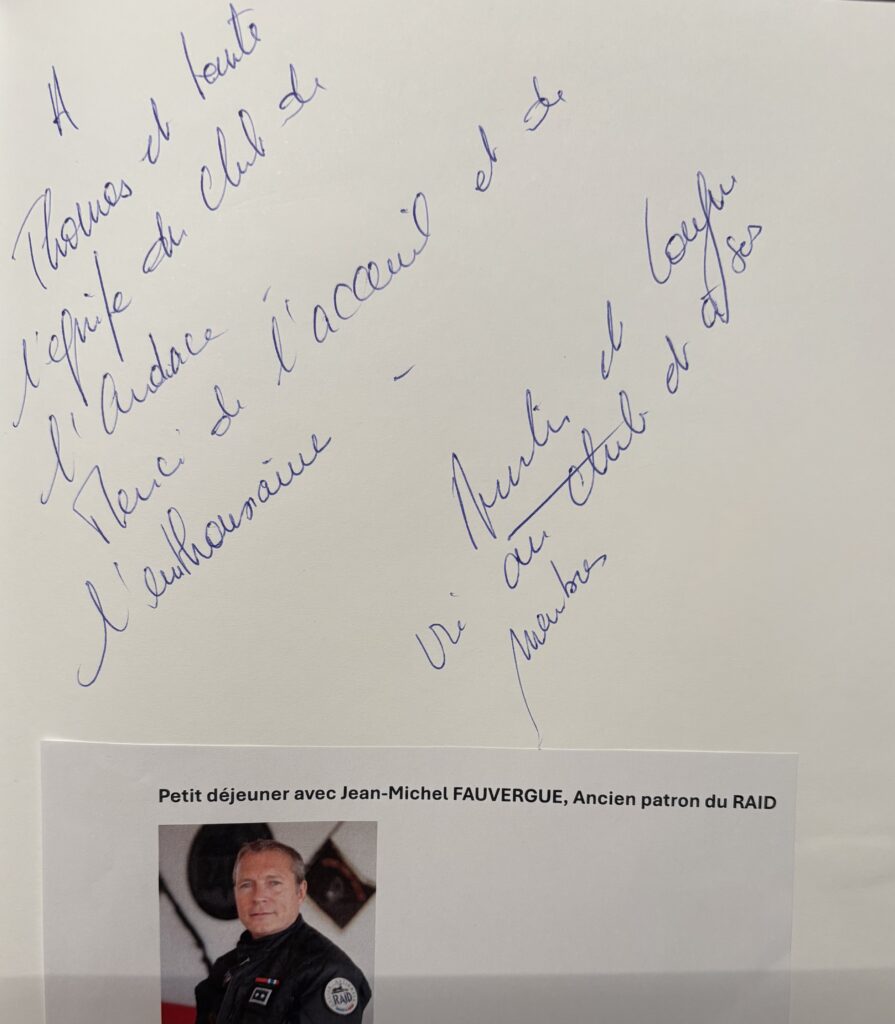 A
Thomas et toute
l'équipe du Club de
l'Audace -
Merci de l'acceuil et de
l'enthousiasme -
et longue
vie au club et à ses
membres
Petit déjeuner avec Jean-Michel FAUVERGUE, Ancien patron du RAID
RAID